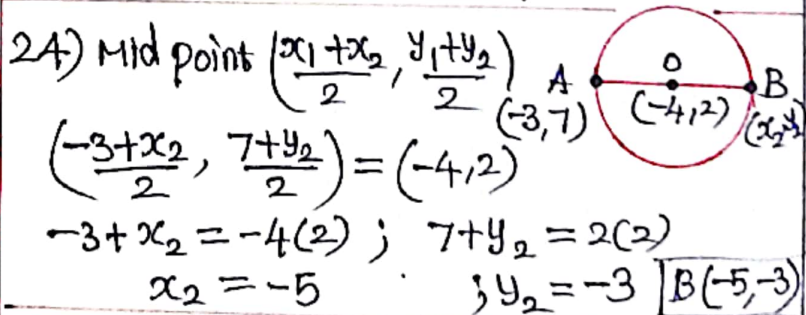 24) Mid point ((x₁+x₂)/2, (y₁+y₂)/2)
A
O
B
(-3,7)
(-4,2)
(x₂,y₂)
((-3+x₂)/2, (7+y₂)/2) = (-4,2)
-3+x₂ = -4(2) ; 7+y₂ = 2(2)
x₂ = -5 ; y₂ = -3 B(-5,-3)